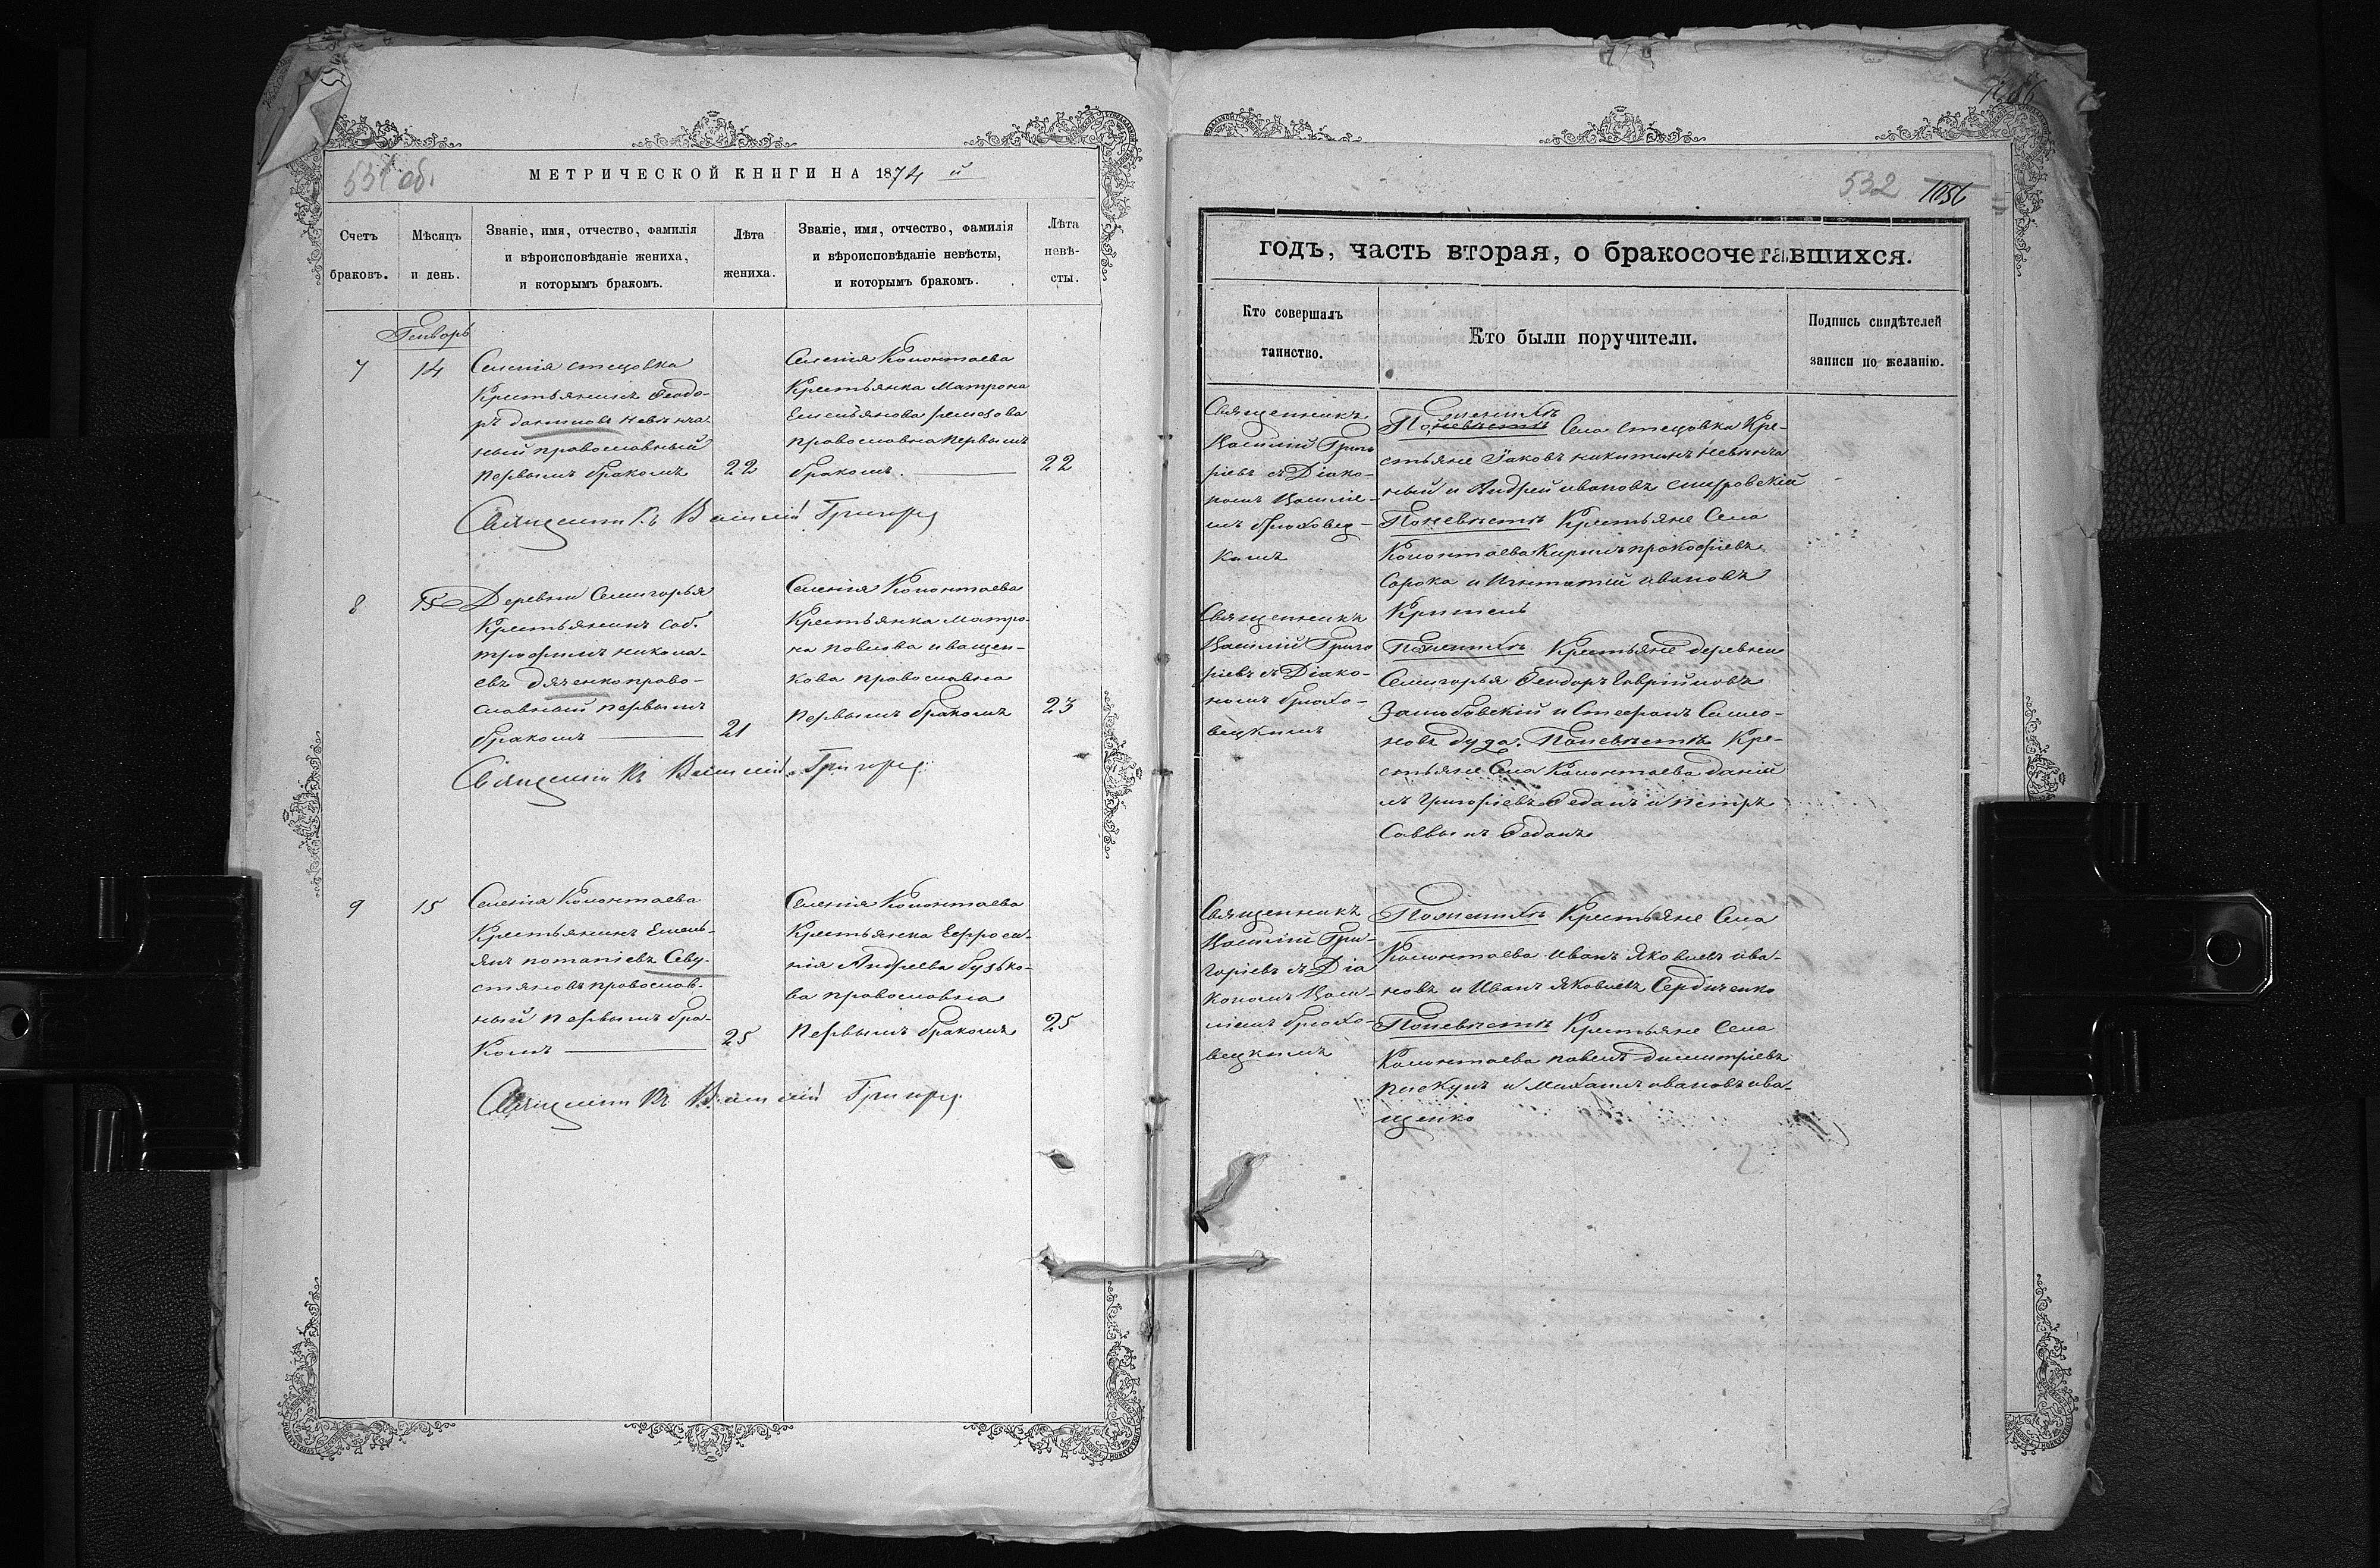 531 об.
МЕТРИЧЕСКОЙ КНИГИ НА 1874 й
Счетъ
браковъ.
Мѣсяцъ
и день.
Званіе, имя, отчество, фамилія
и вѣроисповѣданіе жениха,
и которымъ бракомъ.
Лѣта
жениха.
Званіе, имя, отчество, фамилія
и вѣроисповѣданіе невѣсты,
и которымъ бракомъ.
Лѣта
невѣ-
сты.
Генварь
7
14
Селенія Стецовка
Крестьянинъ Феодо-
ръ даниловъ невѣнча
ный православный
первымъ бракомъ
22
Селенія Колонтаева
Крестьянка Матрона
Емельянова
православна первымъ
бракомъ.
22
Священникъ Василій Григорьев
8
15
Деревни Семигорья
Крестьянинъ соб.
трофимъ никола-
евъ дяченко право-
славный первымъ
бракомъ
21
Селенія Колонтаева
Крестьянка матро-
на павлова иващен-
кова православна
первымъ бракомъ
23
Священникъ Василій Григорьев
9
15
Селенія Колонтаева
Крестьянинъ Емель-
янъ потапіевъ Севу-
стяновъ православ-
ный первымъ бра-
комъ
25
Селенія Колонтаева
Крестьянка Ефроси-
нія Андреева бузько-
ва православна
первымъ бракомъ
25
Священникъ Василій Григорьев
532
1056
годъ, часть вторая, о бракосочетавшихся.
Кто совершалъ
таинство.
Кто были поручители.
Подпись свидѣтелей
записи по желанію.
Священникъ
Василій Григо
ріевъ съ Діако-
номъ Василіе-
мъ брюховец-
кимъ
По женихѣ Села Стецовка Кре-
стьяне Іаковъ никитинъ невѣнча
ный и Андрей ивановъ
По невѣстѣ Крестьяне Села
Колонтаева Кирилъ прокофіевъ
Сорока и Игнатій ивановъ
Священникъ
Василій Григо
ріевъ съ Діако-
номъ брюхо-
вецкимъ
По женихѣ Крестьяне деревни
Семигорья Феодоръ Гавріиловъ
и Стефанъ Симео-
новъ дуда. По невѣстѣ Кре-
стьяне Села Колонтаева даніи
лъ григоріевъ Реданъ и петръ
Саввинъ Реданъ
Священникъ
Василій Гри-
горіевъ съ Діа
кономъ Васи-
ліемъ брюхо-
вецкимъ
По женихѣ Крестьяне Села
Колонтаева иванъ Яковлевъ ива-
новъ и Иванъ Яковлевъ Сердиченко
По невѣстѣ Крестьяне Села
Колонтаева павелъ димитріевъ
пискунъ и михаилъ ивановъ ива-
щенко